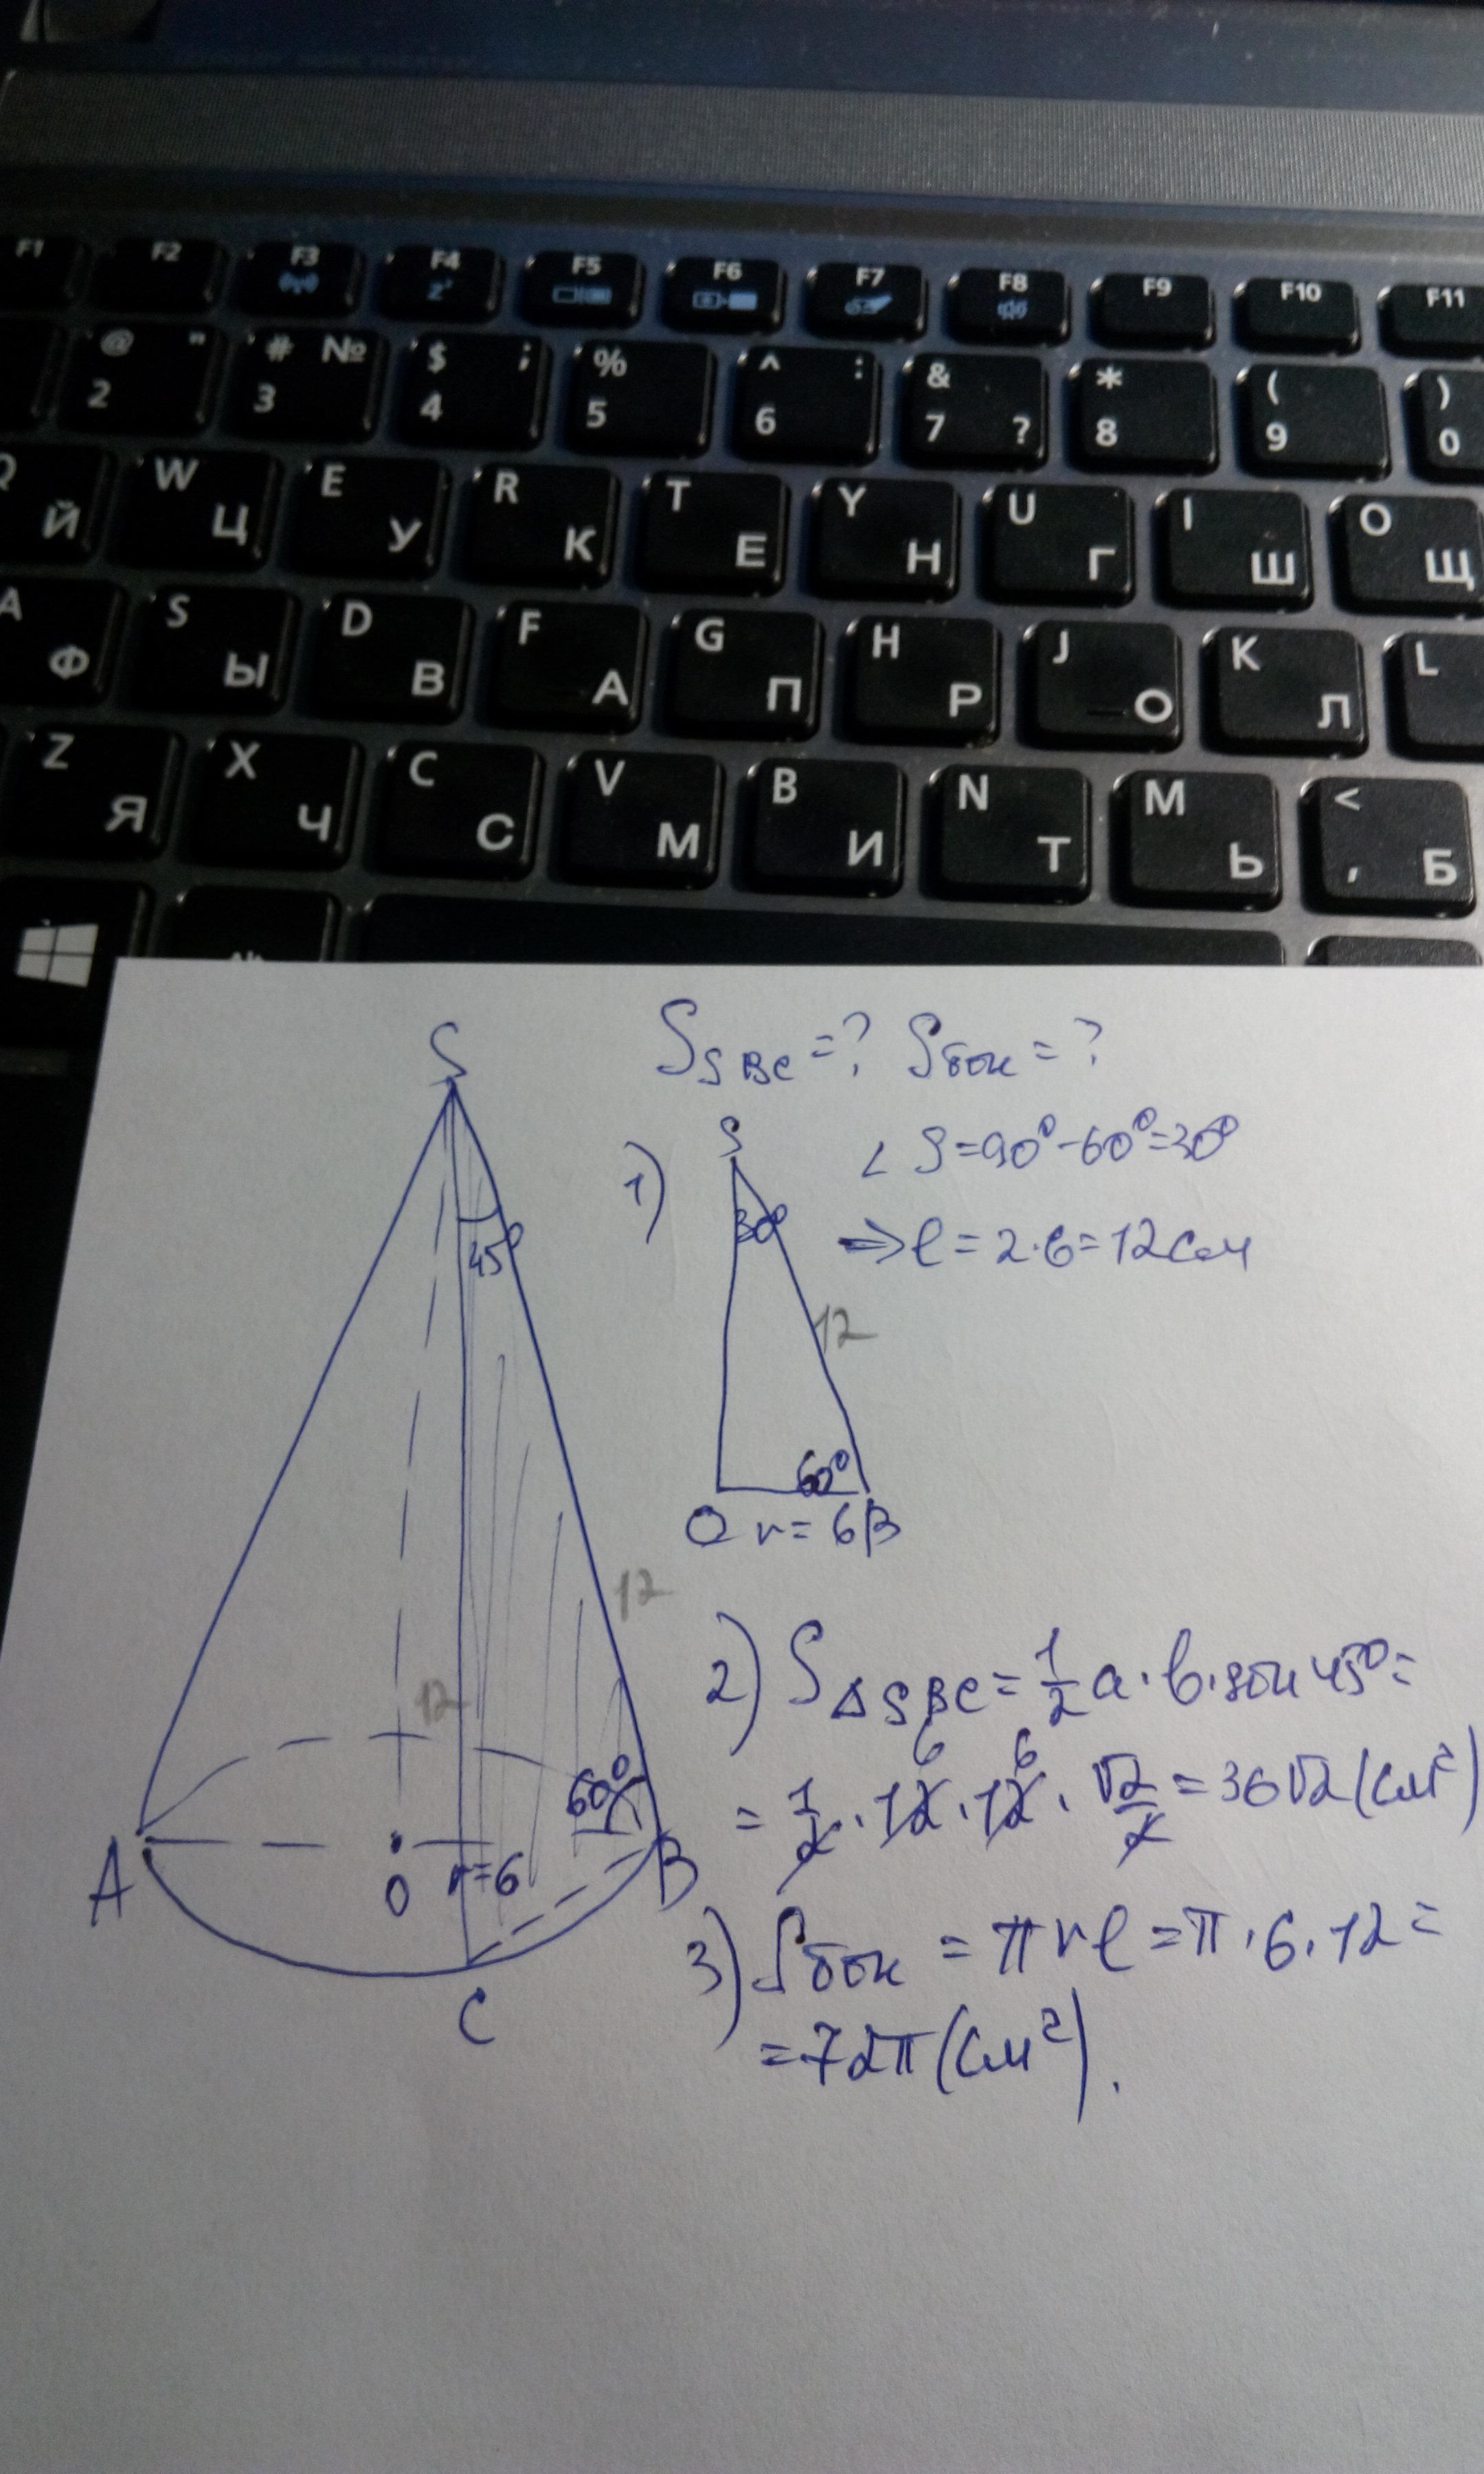 F1 F2 F3 F4 F5 F6 F7 F8 F9 F10 F11
@ " 2 # № 3 $ ; 4 % 5 ^ : 6 & 7 ? * 8 ( 9 ) 0
Й W Ц E У R К T Е Y Н U Г I Ш O Щ
A Ф S Ы D В F А G П H Р J О K Л L
Z Я X Ч C С V М B И N Т M Ь < , Б
S
45°
12
12
60°
A
O
r=6
B
C
S SBC = ? Sбок = ?
1)
S
30°
12
60°
O r = 6 B
∠ S = 90° - 60° = 30°
⇒ l = 2·6 = 12 см
2) S △SBC = 1/2 a · b · sin 45° =
6 6
= 1/2 · 12 · 12 · √2/2 = 36√2 (см²)
3) Sбок = π r l = π · 6 · 12 =
= 72π (см²).